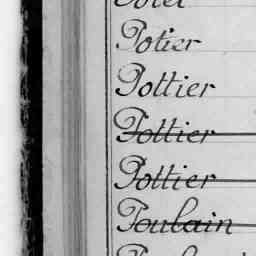 Potier
Pottier
Pottier
Pottier
Poulain